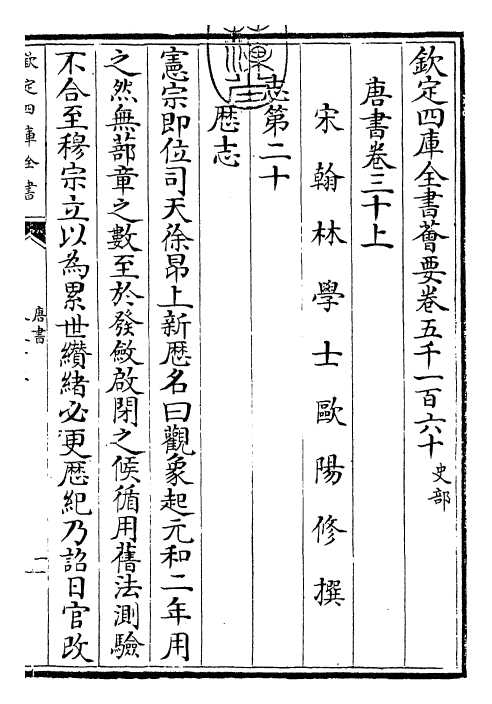 欽定四庫全書薈要卷五千一百六十史部
唐書卷三十上
宋翰林學士歐陽修撰
志第二十
歴志
憲宗即位司天徐昂上新歴名曰觀象起元和二年用
之然無蔀章之數至於發斂啟閉之候循用舊法測驗
不合至穆宗立以為累世纘緒必更歴紀乃詔日官改
欽定四庫全書
唐書